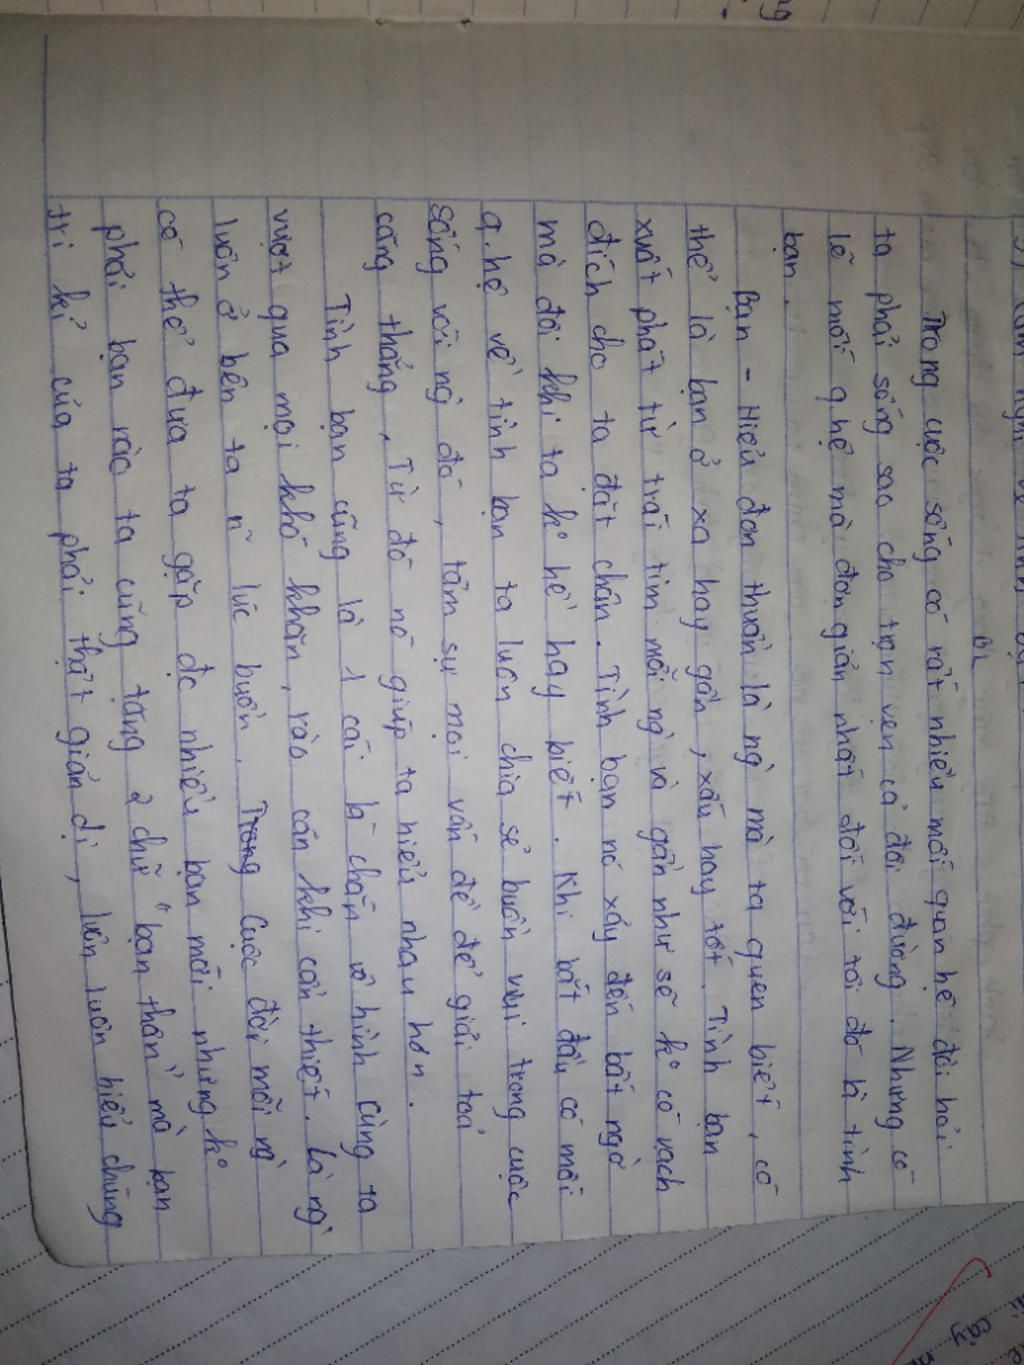 BL
Trong cuộc sống có rất nhiều mối quan hệ đòi hỏi
ta phải sống sao cho trọn vẹn cả đôi đường. Nhưng có
lẽ mối q.hệ mà đơn giản nhất đối với tôi đó là tình
bạn.
Bạn - Hiểu đơn thuần là ng` mà ta quen biết, có
thể là bạn ở xa hay gần, xấu hay tốt. Tình bạn
xuất phát từ trái tim mỗi ng` và gần như sẽ k° có vạch
đích cho ta đặt chân. Tình bạn nó xảy đến bất ngờ
mà đôi khi ta k° hề hay biết. Khi bắt đầu có mối
q.hệ về tình bạn ta luôn chia sẻ buồn vui trong cuộc
sống với ng` đó, tâm sự mọi vấn đề để giải toả
căng thẳng. Từ đó nó giúp ta hiểu nhau hơn.
Tình bạn cũng là 1 cái lá chắn vô hình cùng ta
vượt qua mọi khó khăn, rào cản khi cần thiết. Là ng`
luôn ở bên ta n~ lúc buồn. Trong cuộc đời mỗi ng`
có thể đưa ta gặp đc nhiều bạn mới nhưng k°
phải bạn nào ta cũng tặng 2 chữ "bạn thân" mà bạn
tri kỉ của ta phải thật giản dị, luôn luôn hiểu chúng